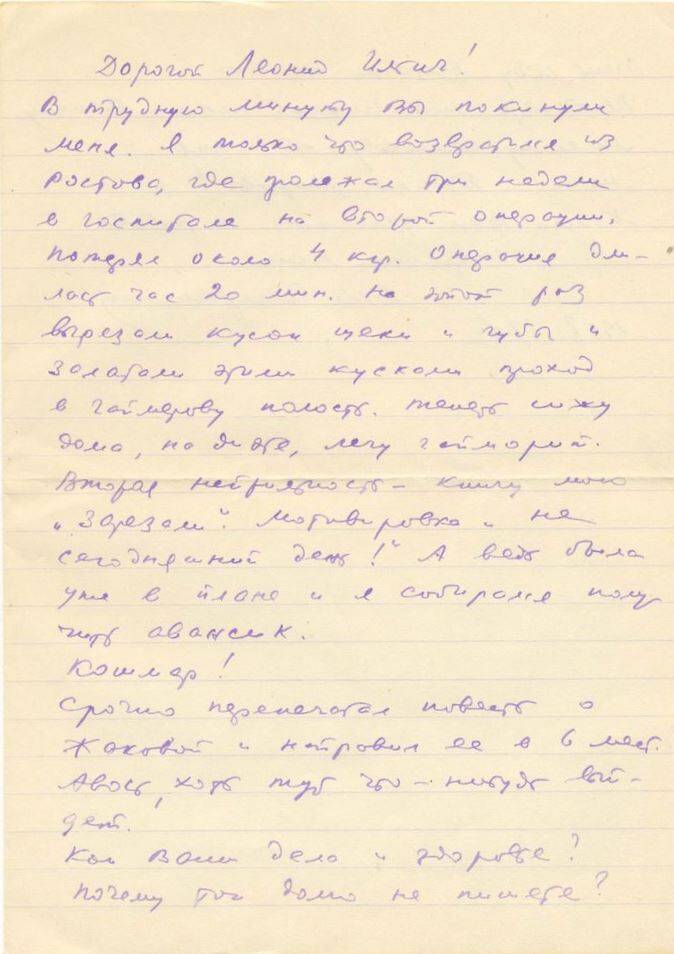 Дорогой Леонид Ильич!
В трудную минуту Вы покинули
меня. Я только что возвратился из
Ростова, где пролежал три недели
в госпитале на второй операции,
потерял около 4 кгр. Операция дли-
лась час 20 мин. На этот раз
вырезали кусок щеки и губы и
залатали этими кусками проход
в гайморову полость. Теперь сижу
дома, на диете, лечу гайморит.
Вторая неприятность – книгу мою
„Зарезали“. Мотивировка „не
сегодняшний день!“ А ведь была
уже в плане и я собирался полу-
чить авансик.
Кошмар!
Срочно перепечатал повесть о
Жаковой и направил ее в 6 мест.
Авось, хоть тут что-нибудь вый-
дет.
Как Ваши дела и здоровье?
Почему так долго не пишете?